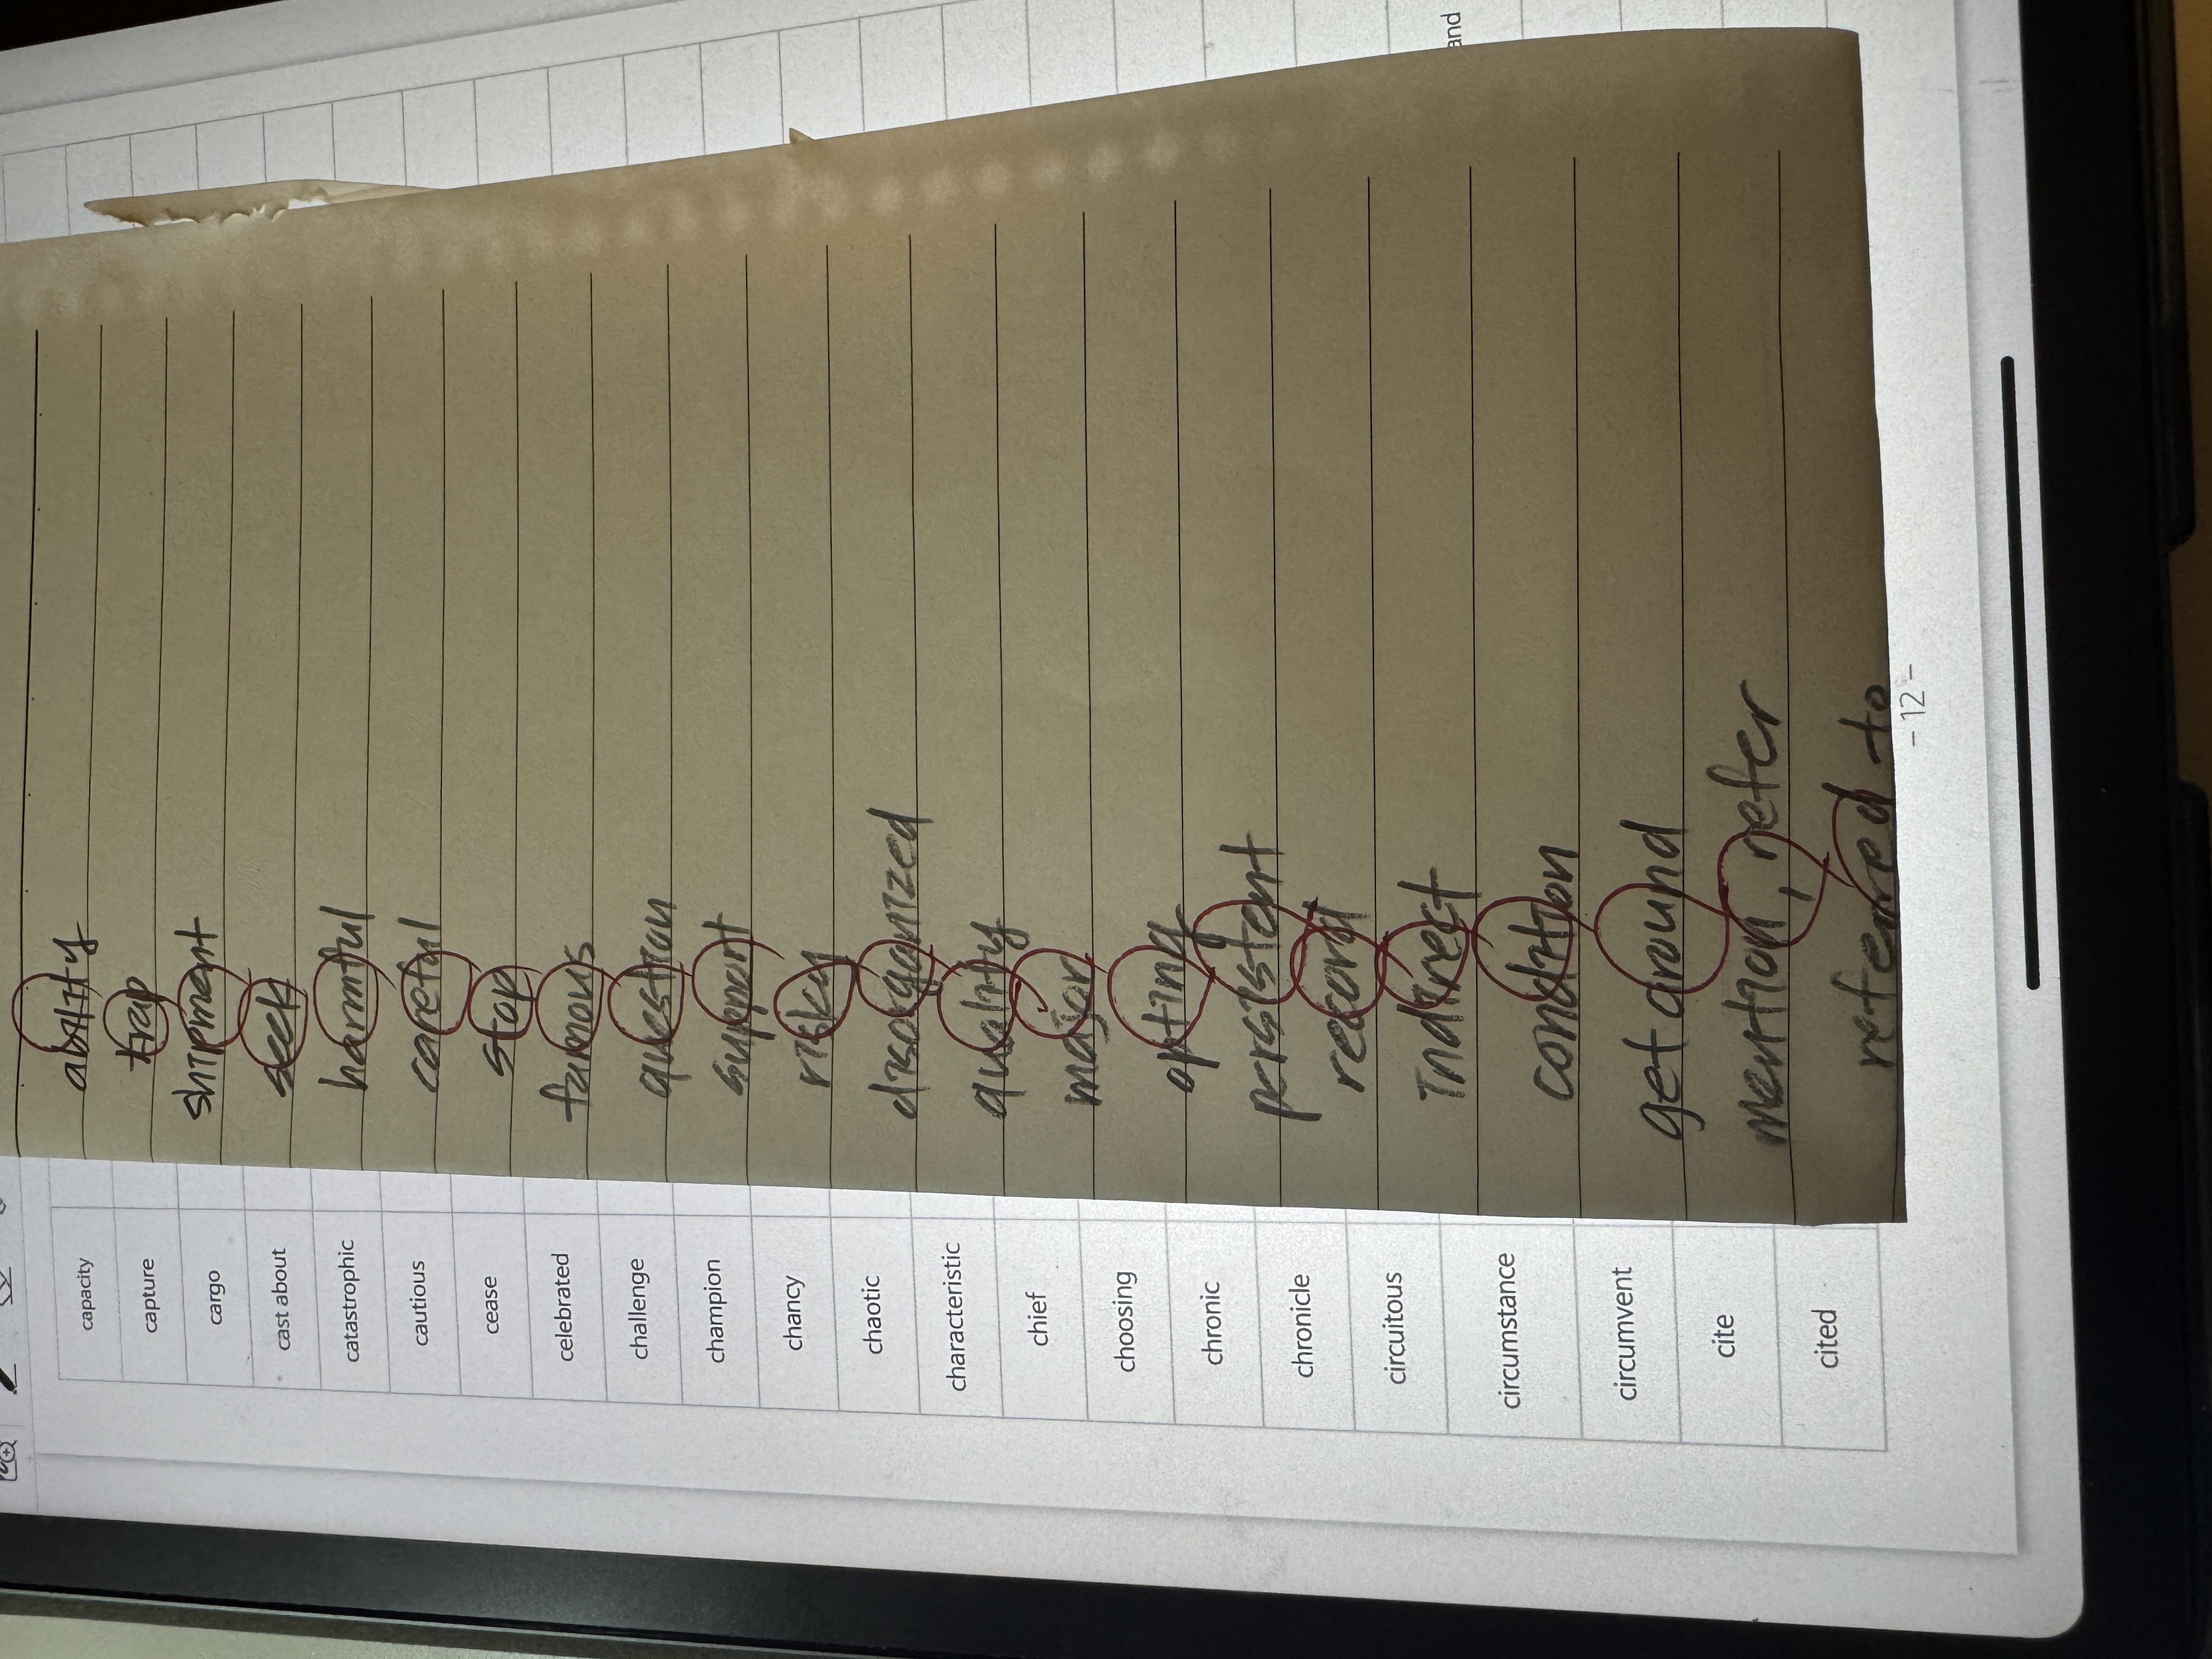 capacity ability
capture trap
cargo shipment
cast about seek
catastrophic harmful
cautious careful
cease stop
celebrated famous
challenge question
champion support
chancy risky
chaotic disorganized
characteristic quality
chief major
choosing opting
chronic persistent
chronicle record
circuitous indirect
circumstance condition
circumvent get around
cite mention, refer
cited referred to
and
- 12 -